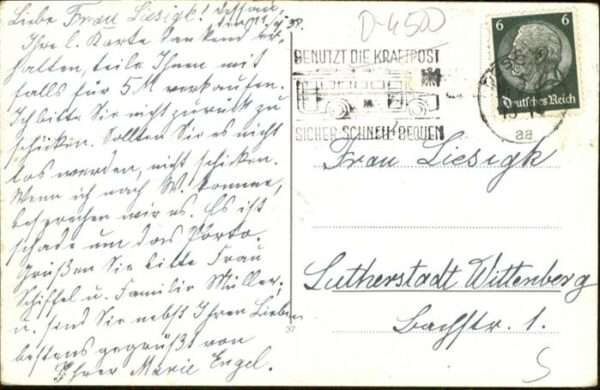 Liebe Frau Liesigk! Dessau,
Ihre l. Karte dankend er-
halten, teile Ihnen mit
falls für 5 M verkaufen.
Ich bitte Sie nicht zurück zu
schicken. Sollten Sie es nicht
los werden, nicht schicken.
Wenn ich nach W. komme,
besprechen wir es. Es ist
schade um das Porto.
Grüßen Sie bitte Frau
Schiffel u. Familie Müller.
u. sind Sie nebst Ihren Lieben
bestens gegrüßt von
Ihrer Marie Engel.
D-4500
BENUTZT DIE KRAFTPOST
SICHER SCHNELL BEQUEM
6 6
Deutsches Reich
aa
Frau Liesigk
Lutherstadt Wittenberg
Bachstr. 1.
37